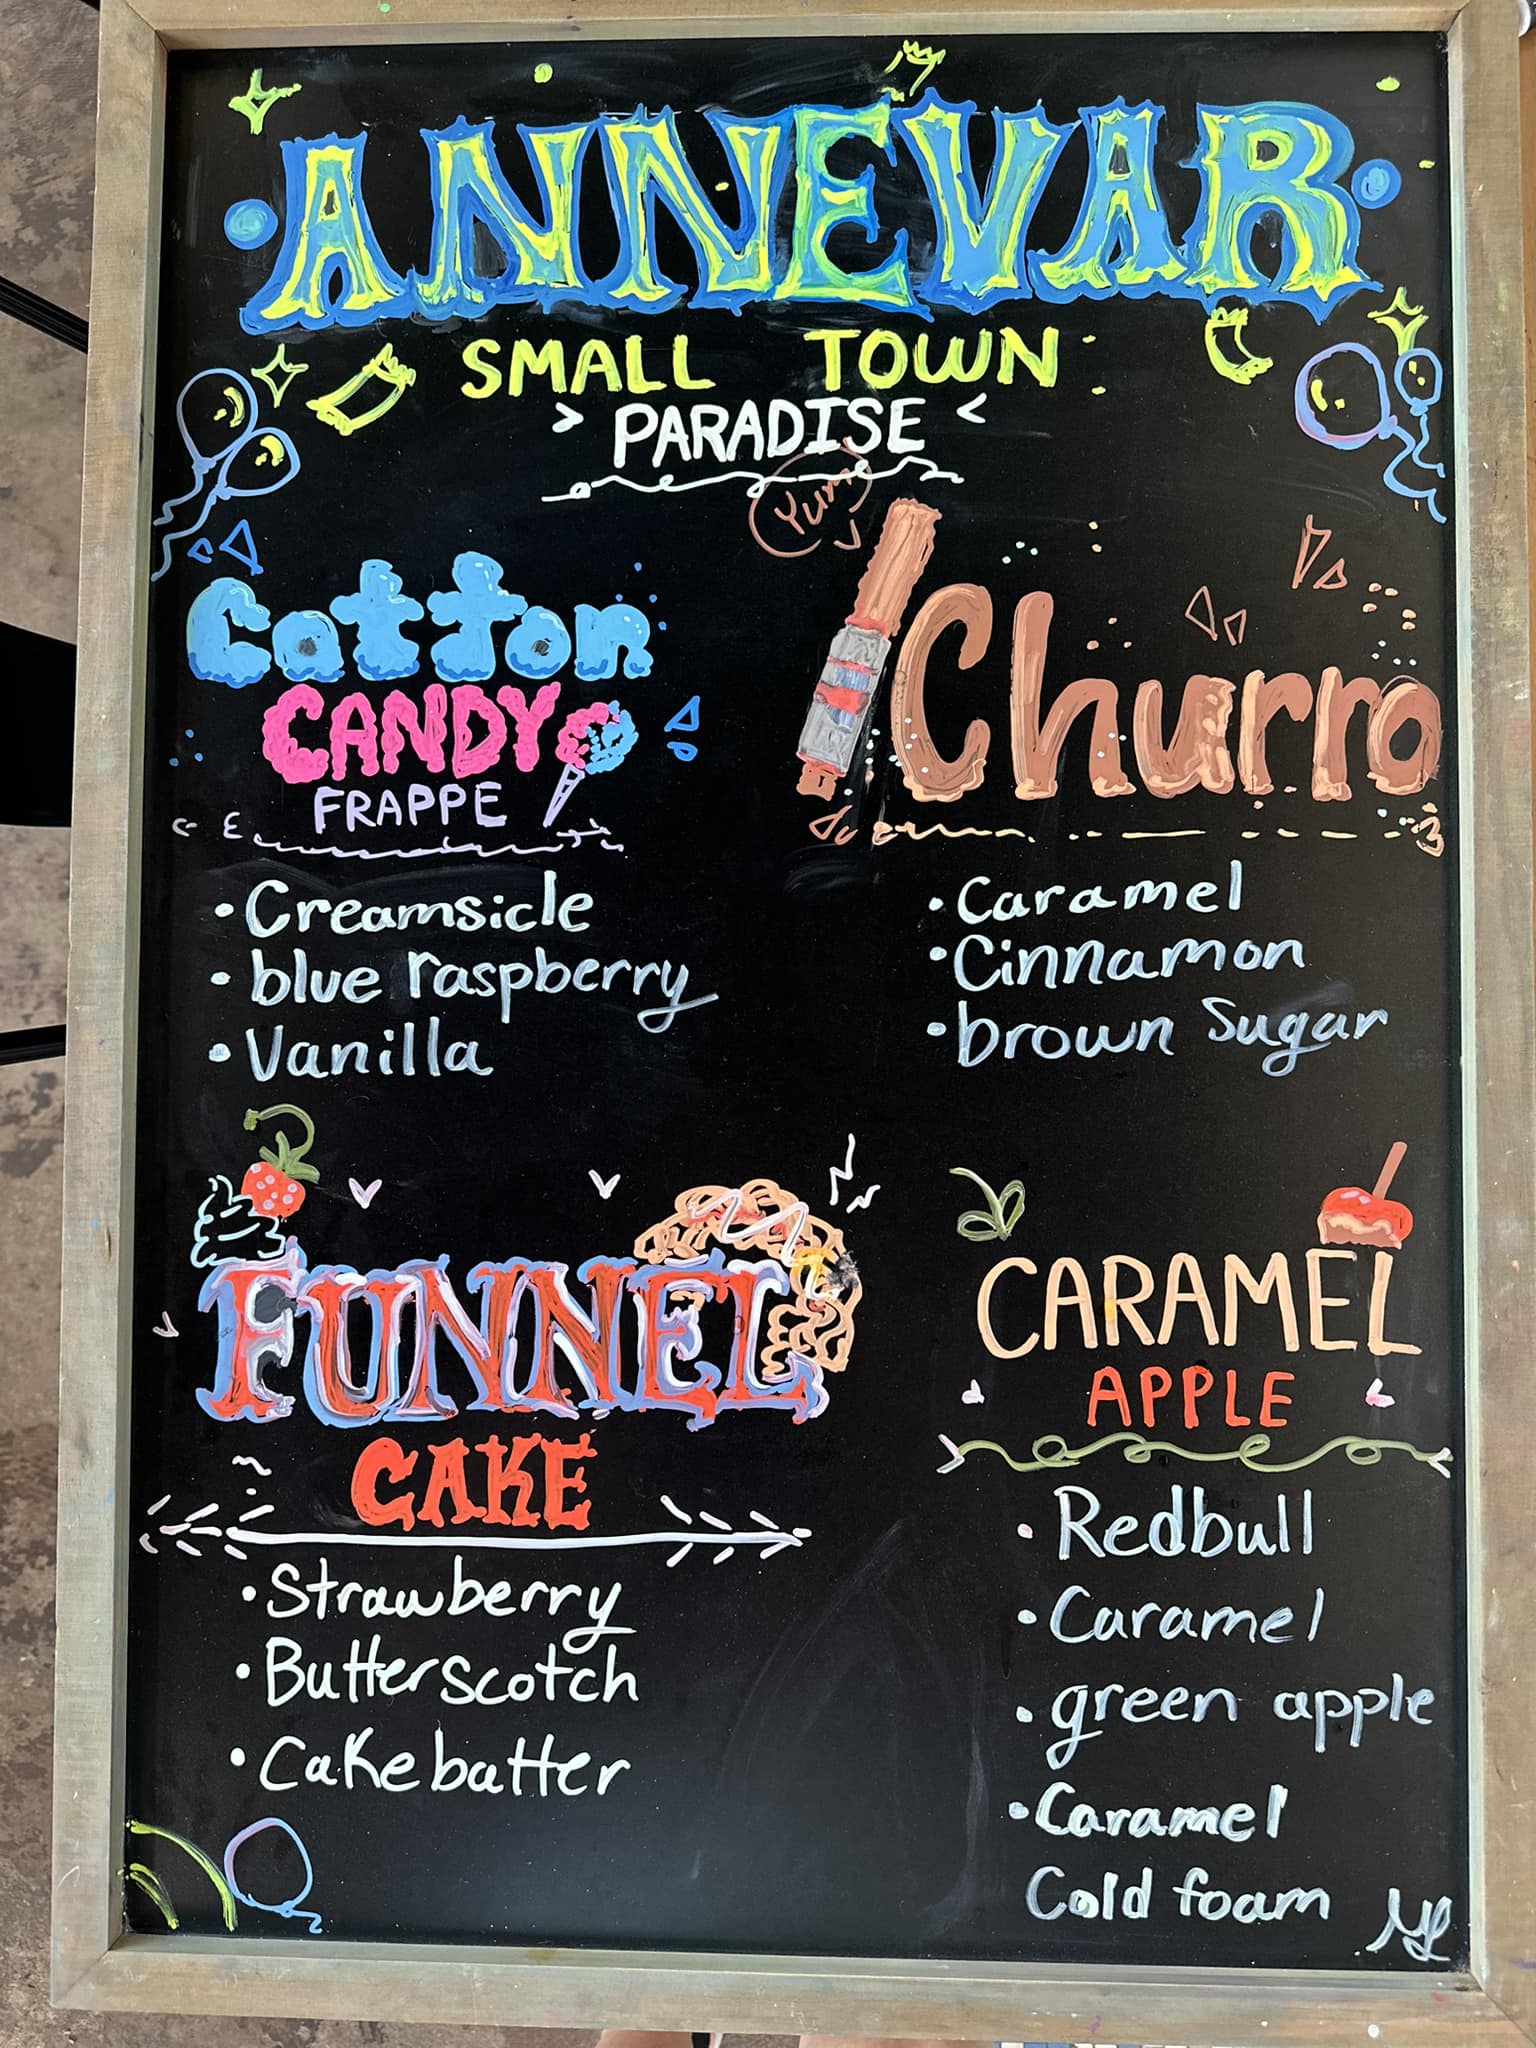 ANNEVAR
SMALL TOWN
PARADISE
Yum
Cotton
CANDY
FRAPPE
• Creamsicle
• blue raspberry
• Vanilla
Churro
• Caramel
• Cinnamon
• brown Sugar
FUNNEL
CAKE
• Strawberry
• Butterscotch
• Cakebatter
CARAMEL
APPLE
• Redbull
• Caramel
• green apple
• Caramel
Cold foam